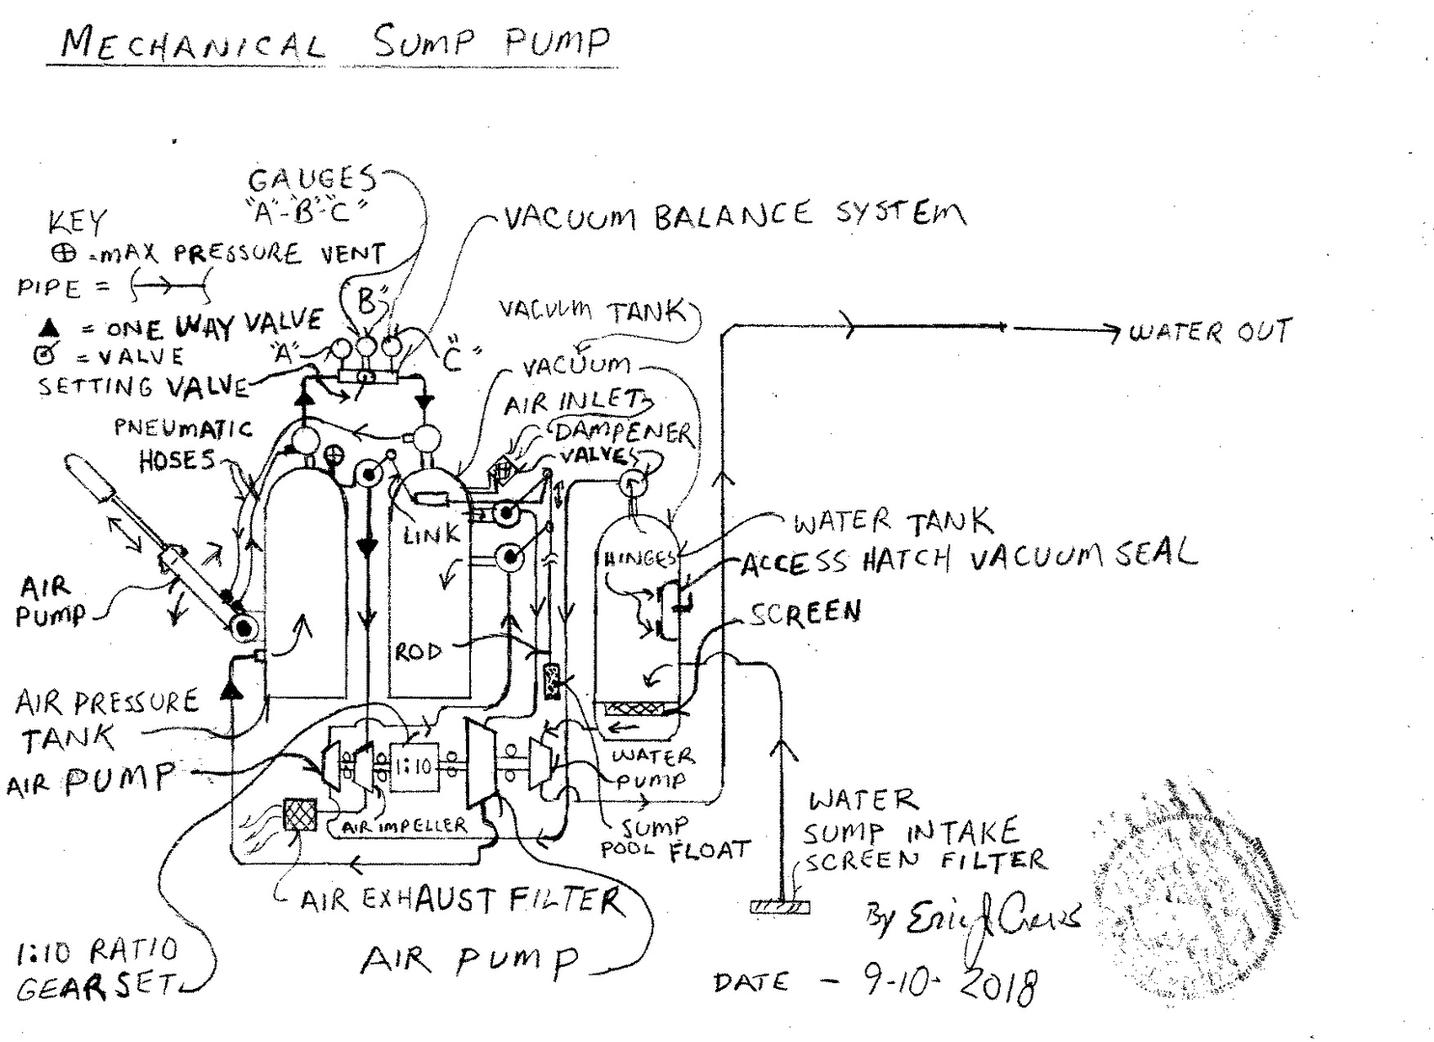 MECHANICAL SUMP PUMP
GAUGES
"A"-"B"-"C"
VACUUM BALANCE SYSTEM
KEY
⊕ = MAX PRESSURE VENT
PIPE =
▲ = ONE WAY VALVE
= VALVE
SETTING VALVE
"A"
B"
"C"
VACUUM TANK
WATER OUT
VACUUM
AIR INLET
DAMPENER
VALVES
PNEUMATIC
HOSES
LINK
HINGES
WATER TANK
ACCESS HATCH VACUUM SEAL
SCREEN
AIR
PUMP
ROD
AIR PRESSURE
TANK
AIR PUMP
1:10
WATER
PUMP
AIR IMPELLER
SUMP
POOL FLOAT
WATER
SUMP INTAKE
SCREEN FILTER
AIR EXHAUST FILTER
AIR PUMP
1:10 RATIO
GEARSET
By Eric J
DATE - 9-10-2018